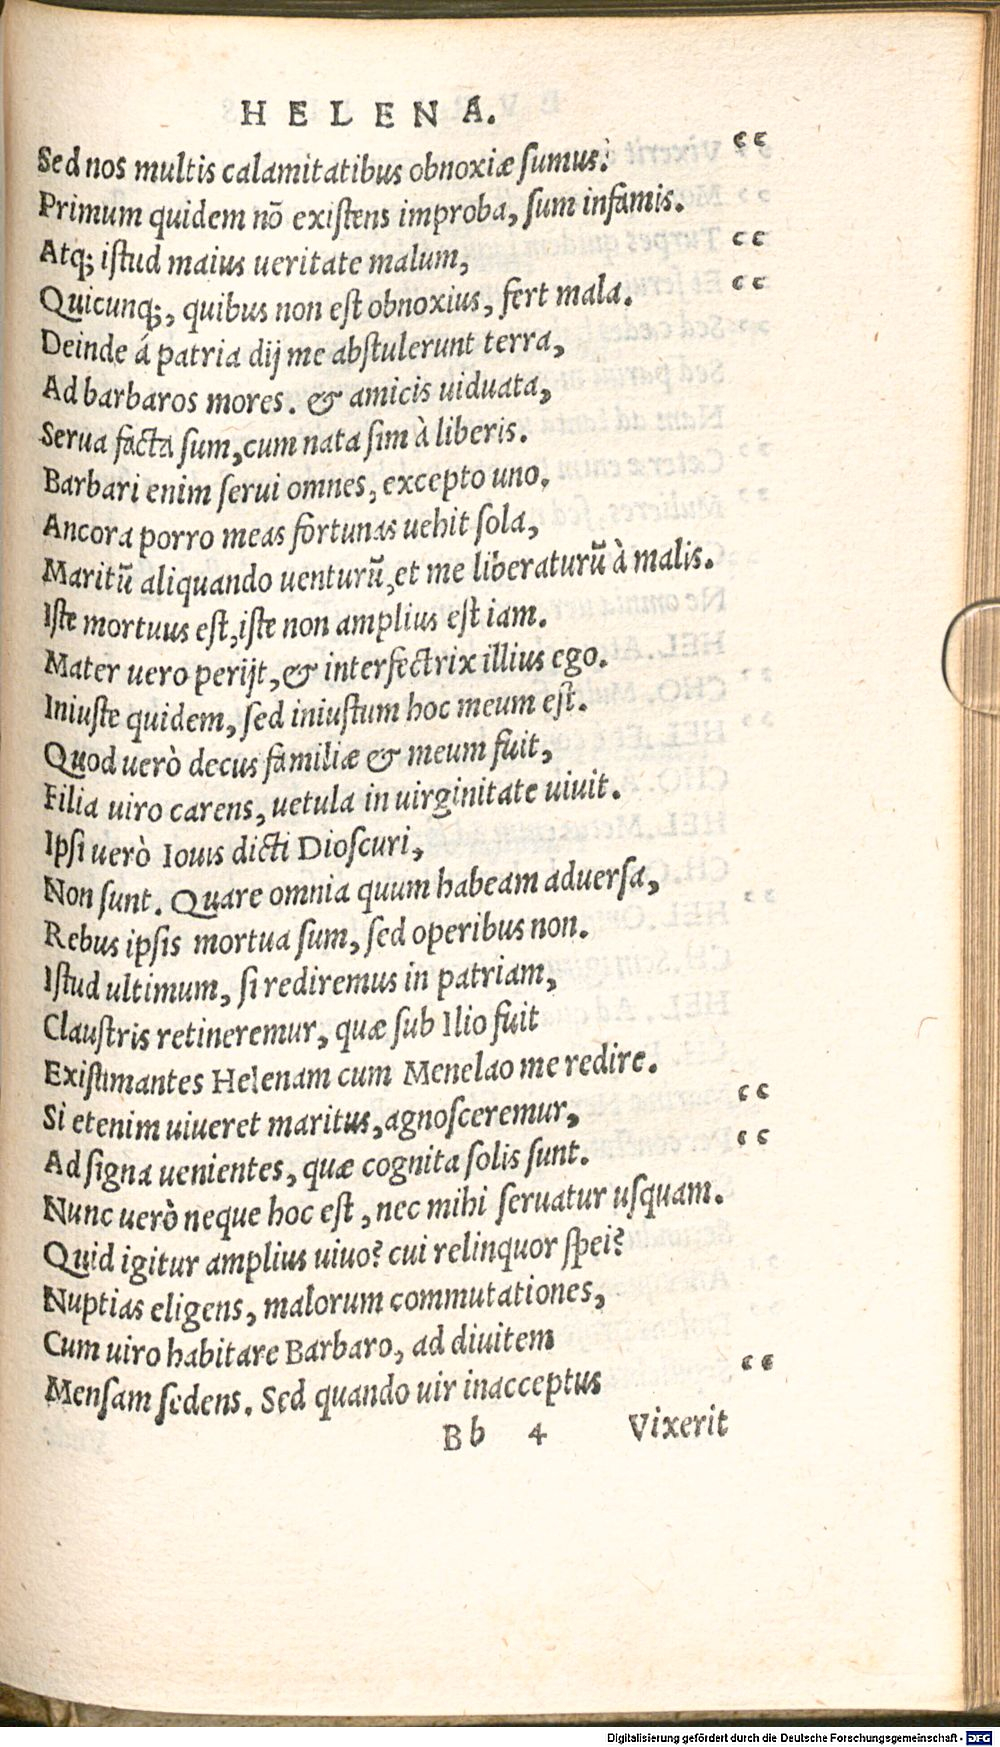 HELENA.
Sed nos multis calamitatibus obnoxiæ ſumus: “
Primum quidem nō exiſtens improba, ſum infamis.
Atq; iſtud maius ueritate malum, “
Quicunq;, quibus non eſt obnoxius, fert mala. “
Deinde á patria dij me abſtulerunt terra,
Ad barbaros mores. & amicis uiduata,
Serua facta ſum, cum nata ſim à liberis.
Barbari enim ſerui omnes, excepto uno.
Ancora porro meas fortunas uehit ſola,
Maritū aliquando uenturū, et me liberaturū à malis.
Iſte mortuus eſt, iſte non amplius eſt iam.
Mater uero perijt, & interfectrix illius ego.
Iniuſte quidem, ſed iniuſtum hoc meum eſt.
Quod uerò decus familiæ & meum fuit,
Filia uiro carens, uetula in uirginitate uiuit.
Ipſi uerò Iouis dicti Dioſcuri,
Non ſunt. Quare omnia quum habeam aduerſa,
Rebus ipſis mortua ſum, ſed operibus non.
Iſtud ultimum, ſi rediremus in patriam,
Clauſtris retineremur, quæ ſub Ilio fuit
Exiſtimantes Helenam cum Menelao me redire.
Si etenim uiueret maritus, agnoſceremur, “
Ad ſigna uenientes, quæ cognita ſolis ſunt. “
Nunc uerò neque hoc eſt, nec mihi ſeruatur uſquam.
Quid igitur amplius uiuo? cui relinquor ſpei?
Nuptias eligens, malorum commutationes,
Cum uiro habitare Barbaro, ad diuitem
Menſam ſedens. Sed quando uir inacceptus “
Bb 4 Vixerit
Digitalisierung gefördert durch die Deutsche Forschungsgemeinschaft - DFG